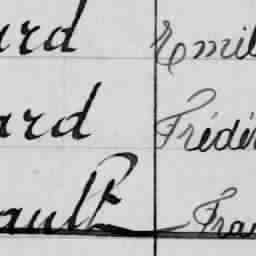 ard Emil
ard Frédér
ault Fra